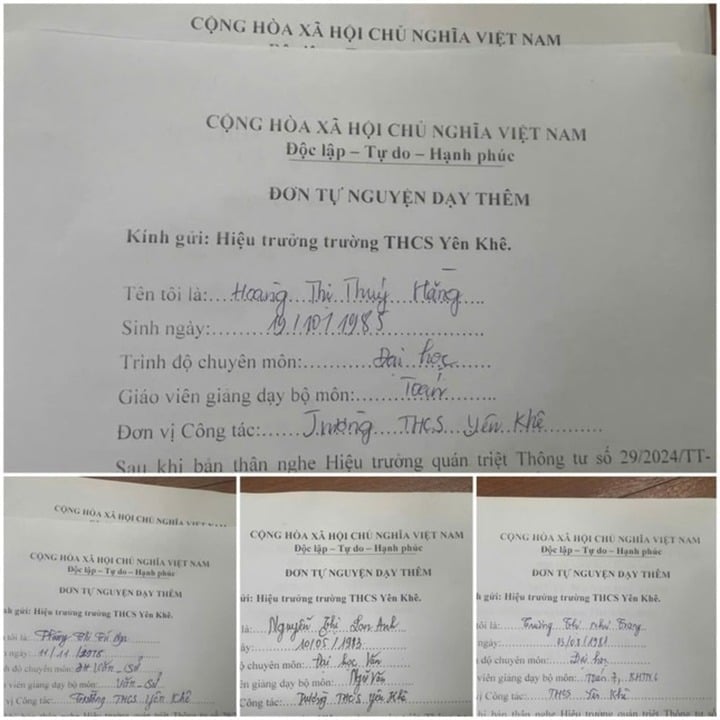 CỘNG HÒA XÃ HỘI CHỦ NGHĨA VIỆT NAM
CỘNG HÒA XÃ HỘI CHỦ NGHĨA VIỆT NAM
Độc lập – Tự do – Hạnh phúc
ĐƠN TỰ NGUYỆN DẠY THÊM
Kính gửi: Hiệu trưởng trường THCS Yên Khê.
Tên tôi là:...Hoàng...Thị...Thuý...Hằng....
Sinh ngày:.......19/10/1985...............
Trình độ chuyên môn:..........Đại học.......
Giáo viên giảng dạy bộ môn:......Toán........
Đơn vị Công tác:......Trường...THCS...Yên Khê..........
Sau khi bản thân nghe Hiệu trưởng quán triệt Thông tư số 29/2024/TT-
CỘNG HÒA XÃ HỘI CHỦ NGHĨA VIỆT NAM
CỘNG HÒA XÃ HỘI CHỦ NGHĨA VIỆT NAM
Độc lập – Tự do – Hạnh phúc
ĐƠN TỰ NGUYỆN DẠY THÊM
gửi: Hiệu trưởng trường THCS Yên Khê.
tôi là: Phùng Thị
ngày: 11/11/1978
độ chuyên môn: ĐH Văn - Sử
viên giảng dạy bộ môn: Văn - Sử
vị Công tác: Trường THCS Yên Khê
CỘNG HÒA XÃ HỘI CHỦ NGHĨA VIỆT NAM
Độc lập – Tự do – Hạnh phúc
ĐƠN TỰ NGUYỆN DẠY THÊM
Hiệu trưởng trường THCS Yên Khê.
là: Nguyễn Thị Lan Anh
10/05/1983
chuyên môn: Đại học Văn
giảng dạy bộ môn: Ngữ Văn
Công tác: Trường THCS Yên Khê
CỘNG HÒA XÃ HỘI CHỦ NGHĨA VIỆT NAM
Độc lập – Tự do – Hạnh phúc
ĐƠN TỰ NGUYỆN DẠY THÊM
gửi: Hiệu trưởng trường THCS Yên Khê.
tôi là: Trương Thị Như Trang
ngày:
độ chuyên môn: Đại học
viên giảng dạy bộ môn: Toán
Công tác: THCS Yên Khê